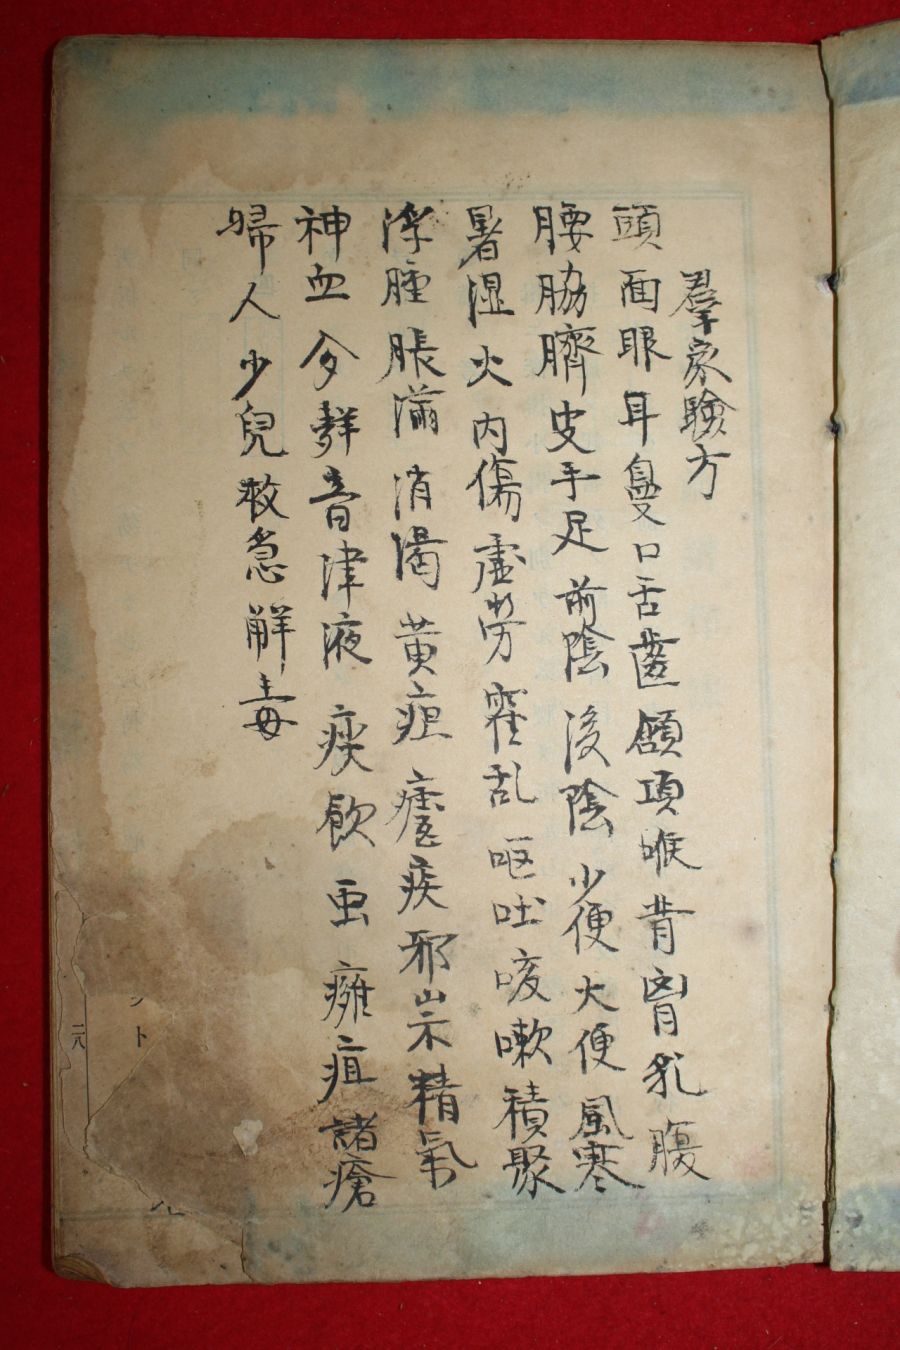 羣家驗方
頭面眼耳鼻口舌齒頷項喉背胷乳腹
腰脇臍皮手足前陰後陰少便大便風寒
暑湿火內傷虛勞霍乱呕吐咳嗽積聚
浮腫脹滿消渴黃疸瘧疾邪祟精氣
神血今音津液痰飮虫癰疽諸瘡
婦人少兒救急解毒
ト